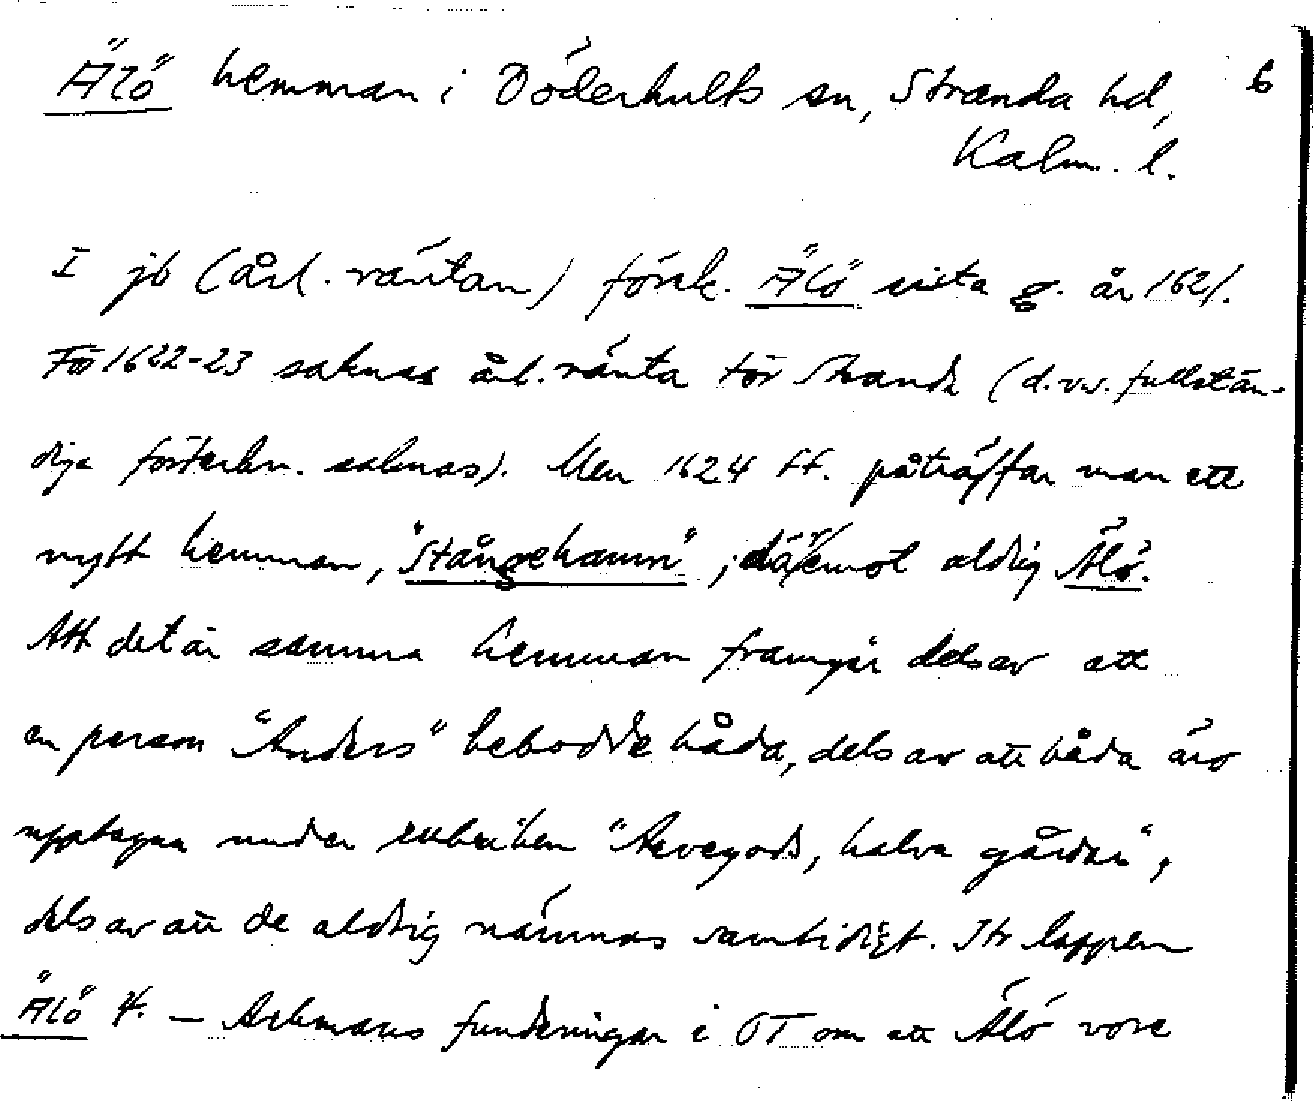 Älö hemman i Döderhults sn, Stranda hd, 6
Kalm. l.
I jb (årl. räntan) försk. Älö sista g. år 1621.
För 1622-23 saknas årl. ränta för Stranda (d.v.s. fullstän-
diga förteckn. saknas). Men 1624 ff. påträffar man ett
nytt hemman, "Stångehamn"; däremot aldrig Älö.
Att det är samma hemman framgår dels av att
en person "Anders" bebodde båda, dels av att båda äro
upptagna under rubriken "Arvegods, halva gårdar",
dels av att de aldrig nämnas samtidigt. Jfr lappen
Älö 4. — Ackmans funderingar i OT om att Älö vore